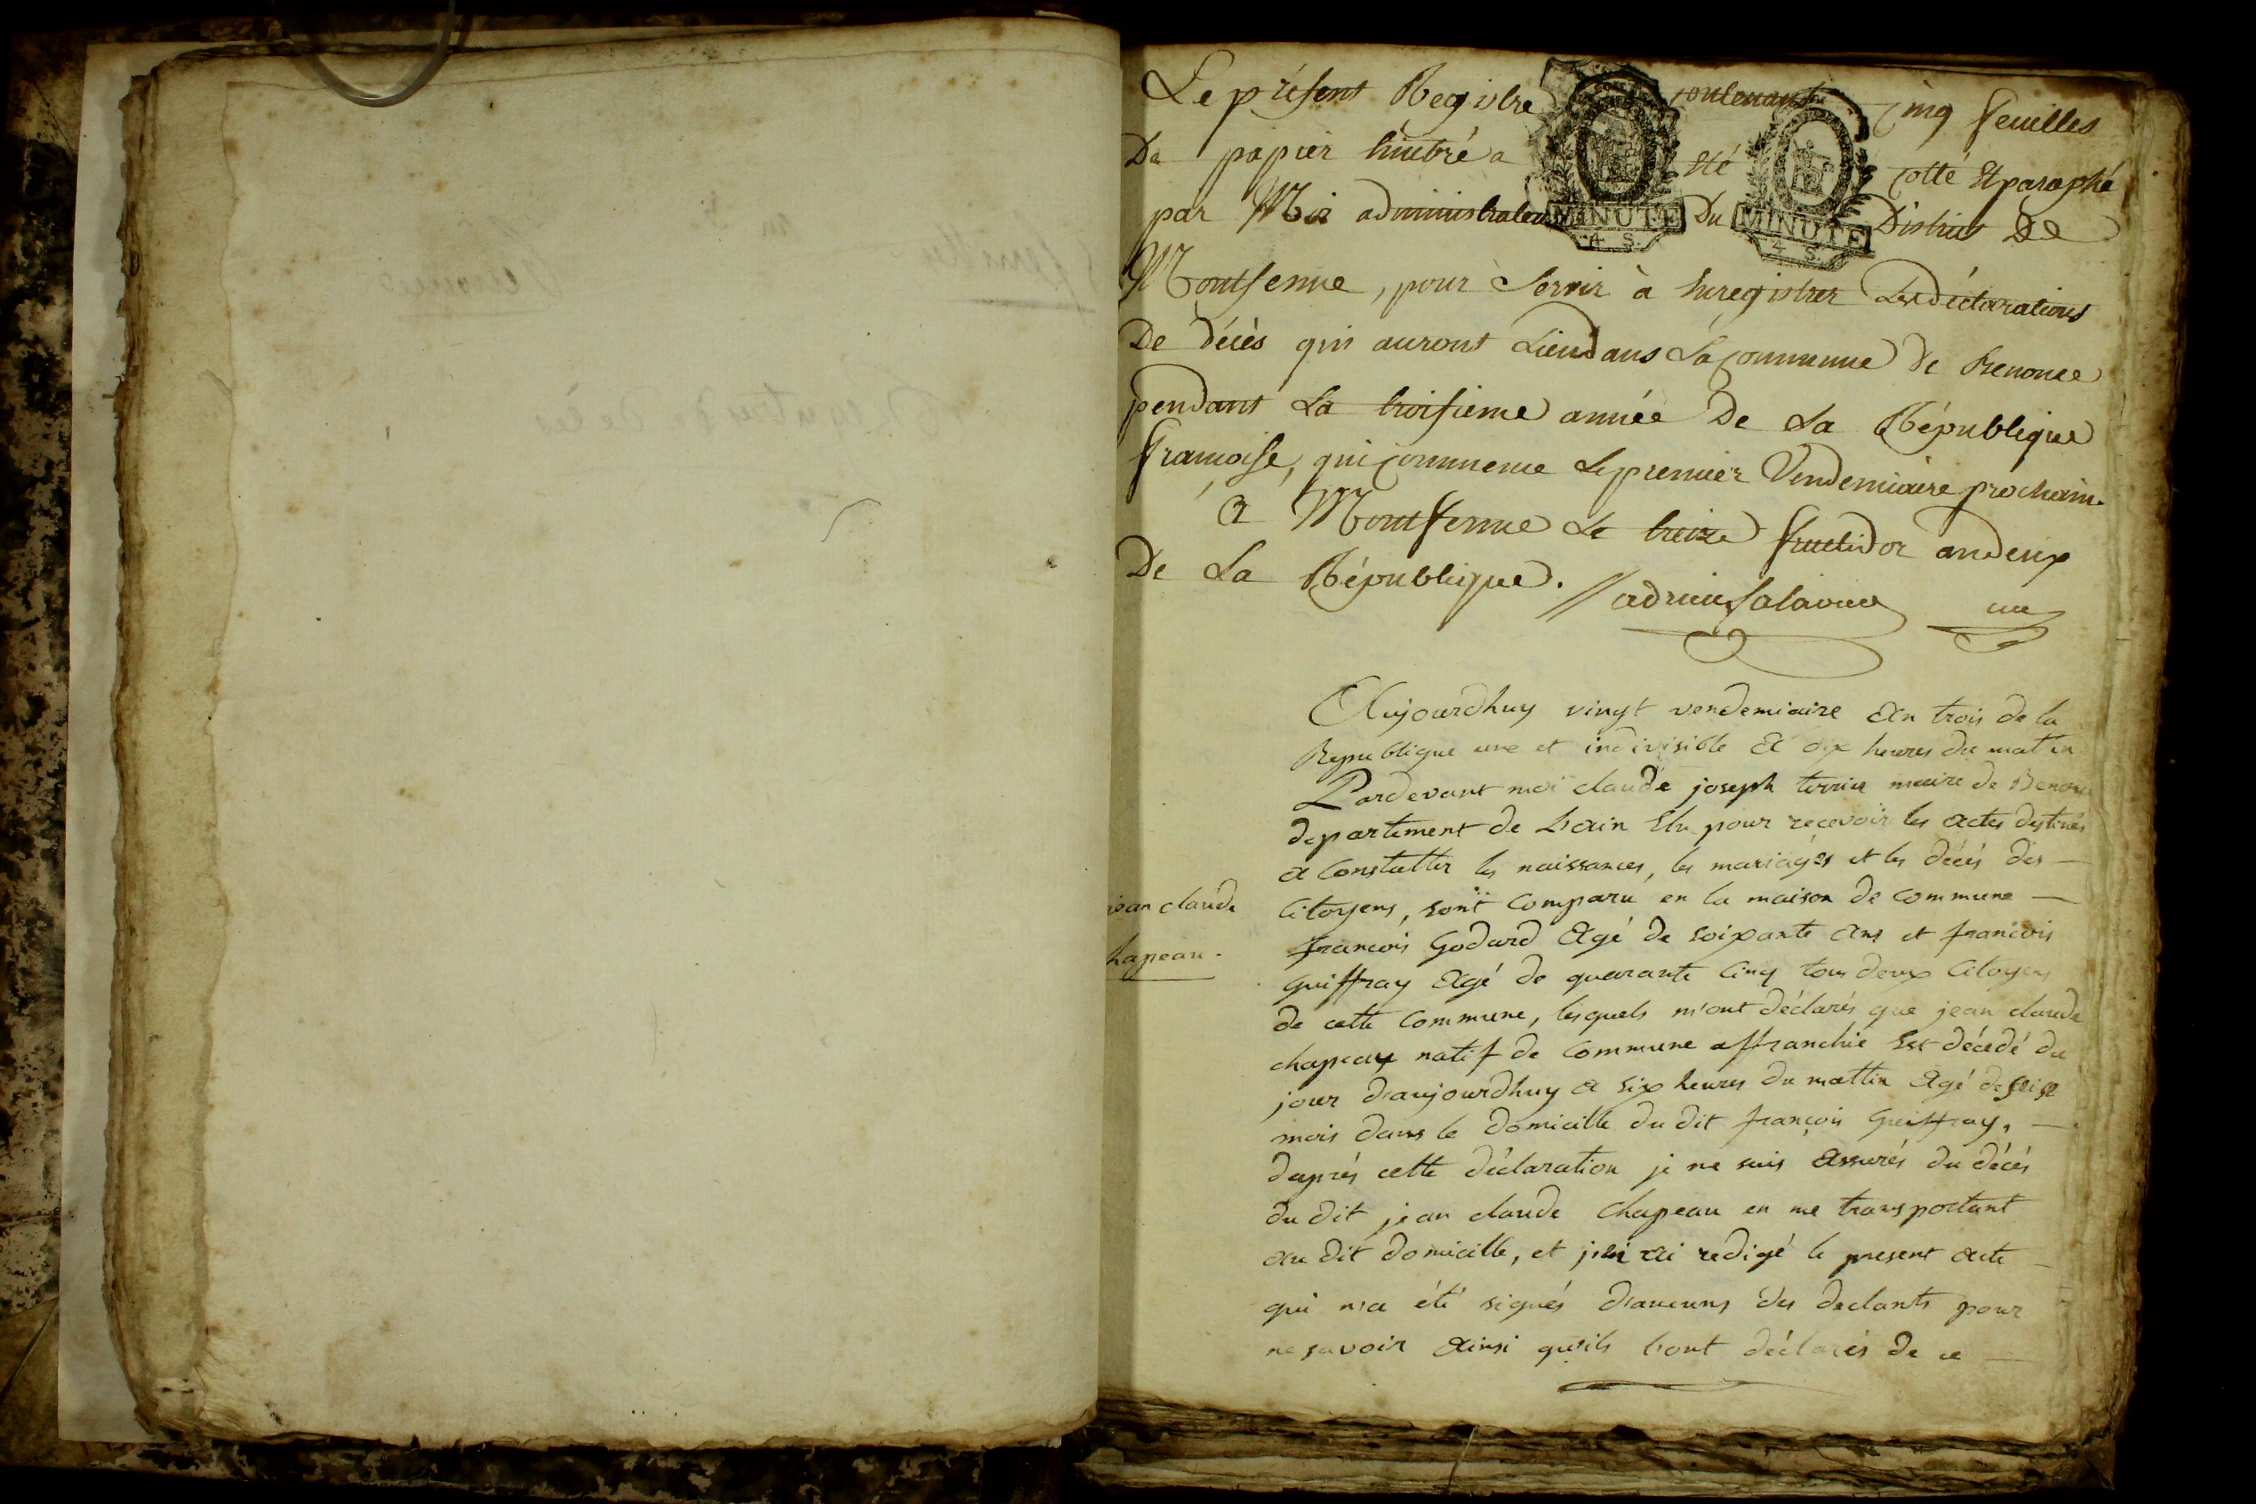 Le présent Registre contenant Cinq feuilles
De papier timbré a Eté Cotté Et paraphé
par Moi administrateur Du District De
Montferme, pour Servir à Enregistrer Les déclarations
De Décès qui auront Lieu dans La Commune de Benonce
pendant La troisieme année De La République
françoise, qui Commence Le premier Vendemiaire prochain.
A Montferme Le treize fructidor an deux
De La République.
MINUTE
4 S.
MINUTE
4 S.
un
Aujourdhuy vingt vendemiaire An trois de la
Republique une et indivisible A dix heures du matin
Pardevant moi claude joseph maire de Benonce
departement de L'ain Elu pour recevoir les actes destinés
a Constatter les naissances, les mariages et les décés des
Citoyens, sont Comparu en la maison de Commune
jean claude
francois Godard Agé de soixante Ans et francois
chapeau.
Guiffray Agé de quarante Cinq tous deux Citoyens
de cette Commune, lesquels m'ont déclarés que jean claude
chapeau natif de Commune affranchie Est décédé du
jour d'aujourdhuy a six heures du mattin Agé de seise
mois dans le domicille du dit françois Guiffray,
daprés cette déclaration je me suis Assurés du décés
du dit jean claude Chapeau en me transportant
au dit domicille, et j'en ai redigé le present Acte
qui n'a été signés d'aucuns des declants pour
ne savoir Ainsi qu'ils l'ont déclarés de ce